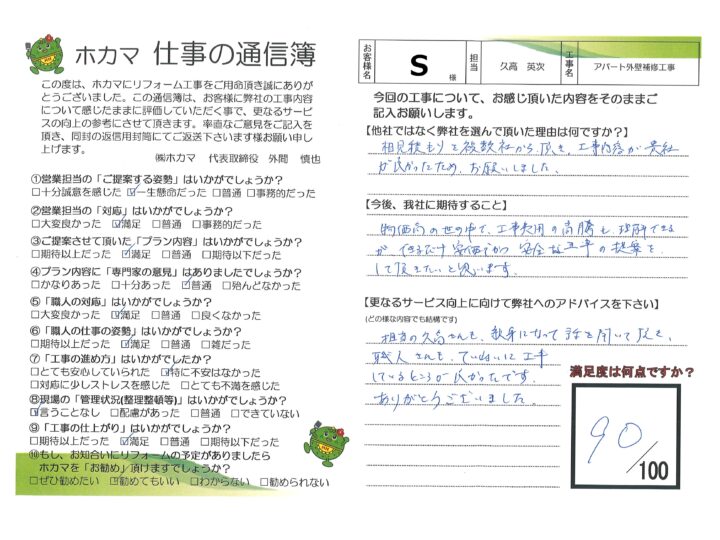 ホカマ 仕事の通信簿
この度は、ホカマにリフォーム工事をご用命頂き誠にありが
とうございました。この通信簿は、お客様に弊社の工事内容
について感じたままに評価していただく事で、更なるサービ
スの向上の参考にさせて頂きます。率直なご意見をご記入を
頂き、同封の返信用封筒にてご返送下さいます様お願い申し
上げます。
㈱ホカマ 代表取締役 外間 慎也
①営業担当の「ご提案する姿勢」はいかがでしょうか?
□十分誠意を感じた ☑一生懸命だった □普通 □事務的だった
②営業担当の「対応」はいかがでしょうか?
□大変良かった ☑満足 □普通 □事務的だった
③ご提案させて頂いた「プラン内容」はいかがでしょうか?
□期待以上だった ☑満足 □普通 □期待以下だった
④プラン内容に「専門家の意見」はありましたでしょうか?
□かなりあった □十分あった ☑普通 □殆んどなかった
⑤「職人の対応」はいかがでしょうか?
□大変良かった ☑満足 □普通 □良くなかった
⑥「職人の仕事の姿勢」はいかがでしょうか?
□期待以上だった ☑満足 □普通 □雑だった
⑦「工事の進め方」はいかがでしたか?
□とても安心していられた ☑特に不安はなかった
□対応に少しストレスを感じた □とても不満を感じた
⑧現場の「管理状況(整理整頓等)」はいかがでしょうか?
☑言うことなし □配慮があった □普通 □できていない
⑨「工事の仕上がり」はいかがでしょうか?
□期待以上だった ☑満足 □普通 □期待以下だった
⑩もし、お知合いにリフォームの予定がありましたら
ホカマを「お勧め」頂けますでしょうか?
□ぜひ勧めたい ☑勧めてもいい □わからない □勧められない
お客様名 S 様 担当 久高 英次 工事名 アパート外壁補修工事
今回の工事について、お感じ頂いた内容をそのままご
記入お願いします。
【他社ではなく弊社を選んで頂いた理由は何ですか?】
相見積もりを複数社から頂き、工事内容が一番
が良かったため、お願いしました。
【今後、我社に期待すること】
物価高の世の中で、工事費用の高騰も理解できる
が できるだけ安価でかつ安全な工事の提案を
して頂きたいと思います。
【更なるサービス向上に向けて弊社へのアドバイスを下さい】
(どの様な内容でも結構です)
担当の久高さんも、親身になって話を聞いて頂き、
職人さんも、ていねいに工事
しているところが良かったです。
ありがとうございました。
満足度は何点ですか?
90/100